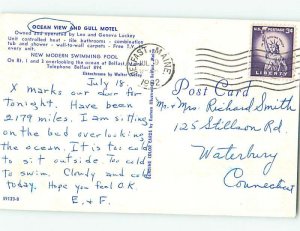 OCEAN VIEW AND GULL MOTEL
Owned and operated by Leo and Geneva Lackey
Unit controlled heat - tile bathrooms - combination
tub and shower - wall-to-wall carpets - Free T.V.
every unit.
NEW MODERN SWIMMING POOL
On Rt. 1 and 3 overlooking the ocean at Belfast
Telephone Belfast
July 18,
X marks our dur for
Tonight. Have been
2179 miles. I am sitting
on the bed overlooking
the ocean. It is too cold
to sit outside. Too cold
to swim. Cloudy and cold
today. Hope you feel O.K.
E. + F.
39123-B
BELFAST, MAINE
JUL
1962
3¢
LIBERTY
Post Card
Mr + Mrs. Richard Smith
125 Stillson Rd.
Waterbury
Connecticut